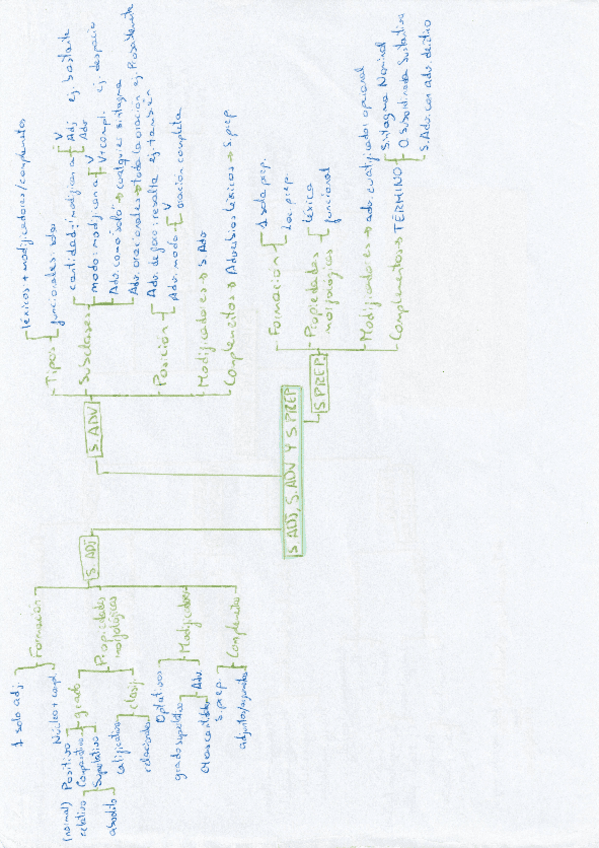 S ADJ, S. ADV Y S PREP
S. ADJ
Formación
1 solo adj.
Núcleo + compl.
Propiedades morfológicas
grado
(normal) Positivo
Comparativo
Superlativo
relativo
absoluto
clasif.
calificativos
relacionales
Modificador
Optativos
grado superlativo
Adv.
Complemento
S. prep.
S. ADV
Tipos
léxicos + modificadores/complementos
funcionales: solos
Subclases
cantidad: modifican a
V
Adj ej. bastante
Adv
modo: modifican a
V
V + compl. ej. despacio
Adv. como "solo" → cualquier sintagma
Adv. oracionales → toda la oración ej. Posiblemente
Adv. de foco: resalta ej. también
Posición
Adv. modo
V
oración completa
Modificadores → S. Adv
Complementos → Adverbios léxicos → S. prep
S PREP.
Formación
1 sola prep.
Loc. prep.
Propiedades morfológicas
léxica
funcional
Modificadores → adv. cuatificador opcional
Complementos → TÉRMINO
Sintagma Nominal
O. Subordinada Sustantiva
S. Adv. con adv. deíctico